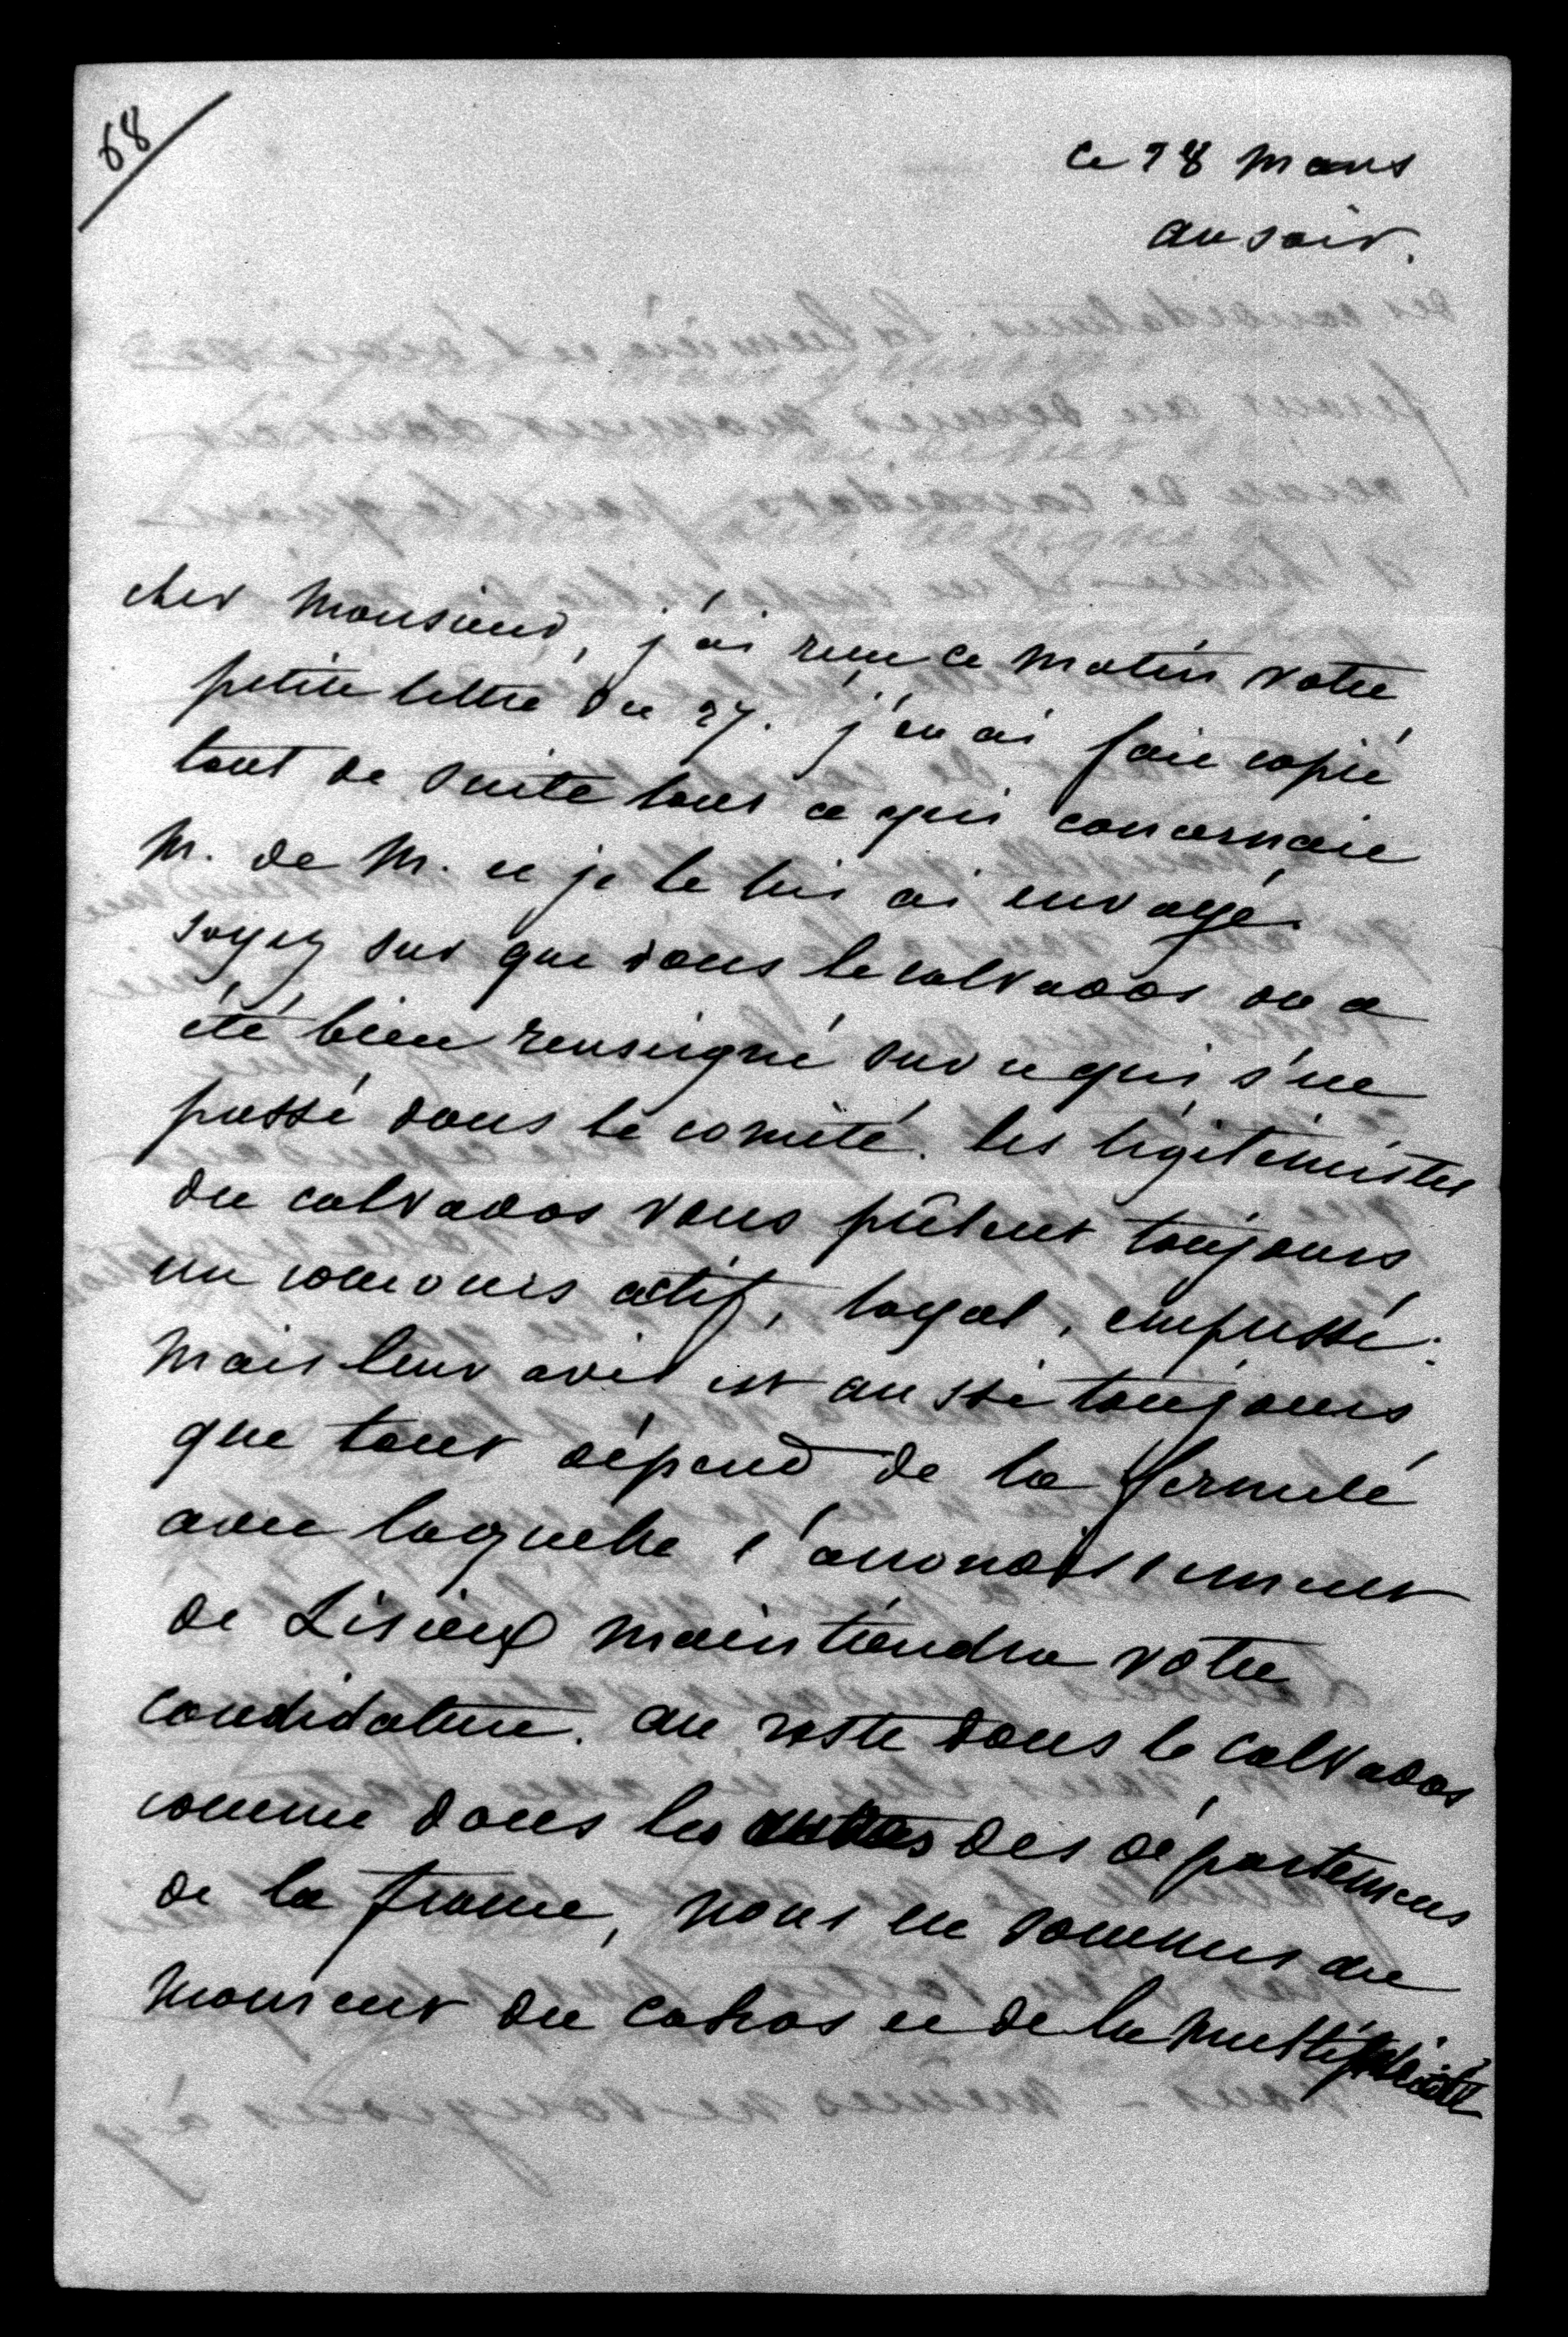 68
ce 28 mars
au soir.
cher Monsieur, j'ai reçu ce matin votre
petite lettre du 27. j'en ai fait copié
tout de suite tout ce qui concernait
M. de M. et je le lui ai envoyé.
soyez sur que dans le calvados on a
été bien renseigné sur ce qui s'est
passé dans le comité. les légitimistes
du calvados vous prêtent toujours
un concours actif, loyal, empressé.
Mais leur avis est aussi toujours
que tout dépend de la fermeté
avec laquelle l'arrondissement
de Lisieux maintiendra votre
candidature. au reste dans le calvados
comme dans les des départemens
de la france, nous en sommes au
moment du cahos et de la multiplicité